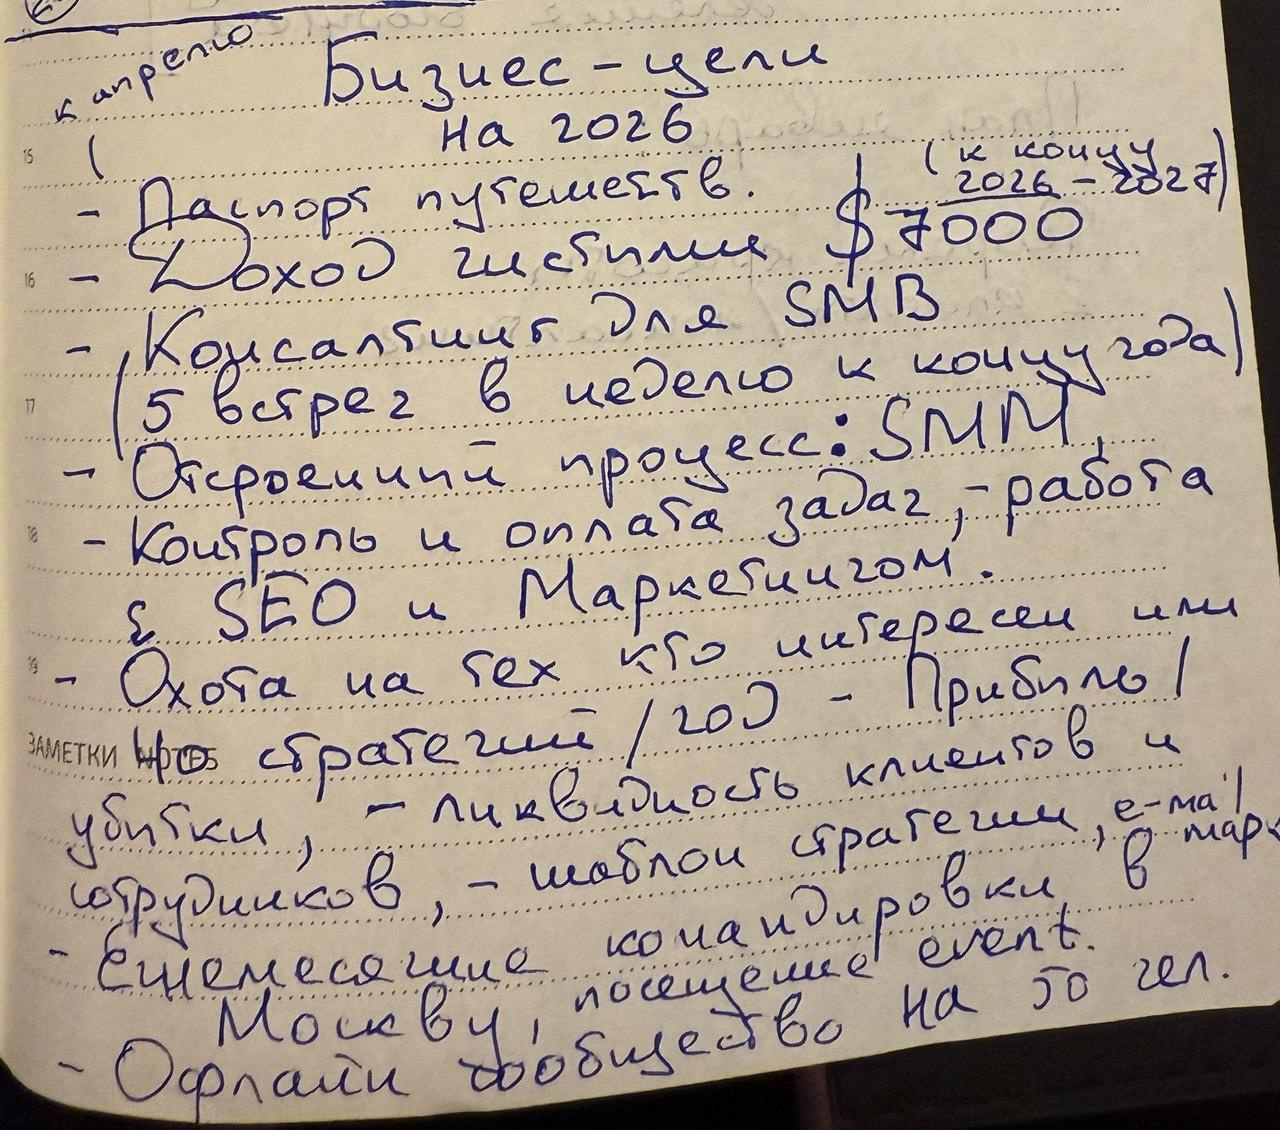 к апрелю
Бизнес-цели
на 2026
15 (
- Паспорт путешеств.
(к концу
2026 - 2027)
16 - Доход чистыми $7000
- Консалтинг для SMB
17 (5 встреч в неделю к концу года)
- Отстроенный процесс: SMM,
18 - Контроль и оплата задач, - работа
с SEO и Маркетингом.
19 - Охота на тех кто интересен или
ЗАМЕТКИ NOTES 40 стратегий / год - Прибыль /
убытки, - ликвидность клиентов и
сотрудников, - шаблон стратегии, e-mail
марк
- Ежемесячные командировки в
Москву, посещение event.
- Офлайн сообщество на 50 чел.